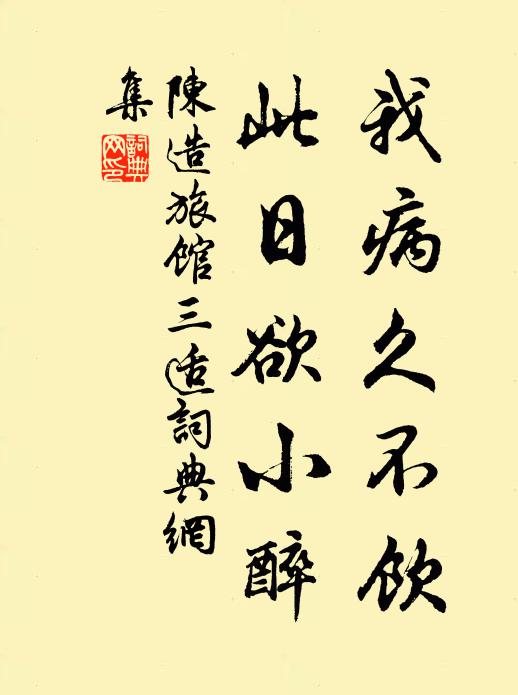 我病久不飲
此日欲小醉
陳造旅館三适詞典網
集
詞典網印